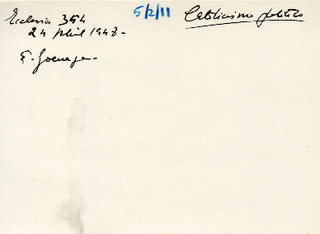 Ecclesia 354
24 Abril 1948.-
5/2/11
Catolicismo político
E. Goenaga.-